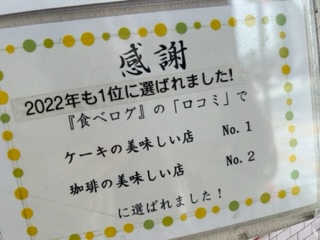 感謝
2022年も1位に選ばれました!
『食べログ』の「口コミ」で
ケーキの美味しい店 No.1
珈琲の美味しい店 No.2
に選ばれました!